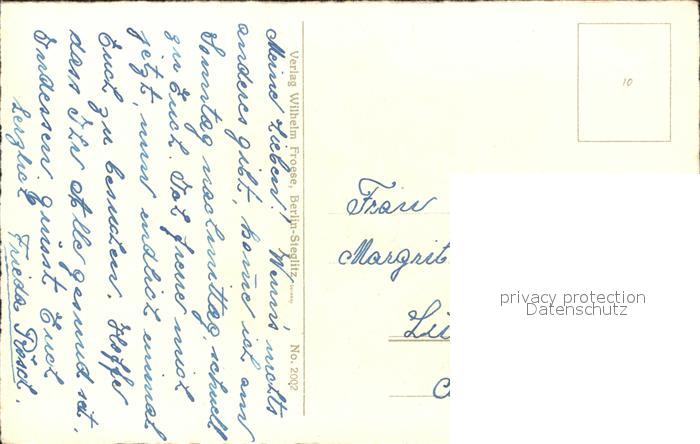 Meine Lieben! Wenns, nichts
anderes gibt, komme ich am
Sonntag nachmittag, schnell
zu Euch. Ich freue mich
jetzt, nun endlich einmal
Euch zu besuchen. Hoffe
dass Ihr Alle gesund seit.
Indessen grüsst Euch
herzlich Frieda
Verlag Wilhelm Froese, Berlin-Steglitz,
No. 2002
10
Frau
Margrit
privacy protection
Datenschutz